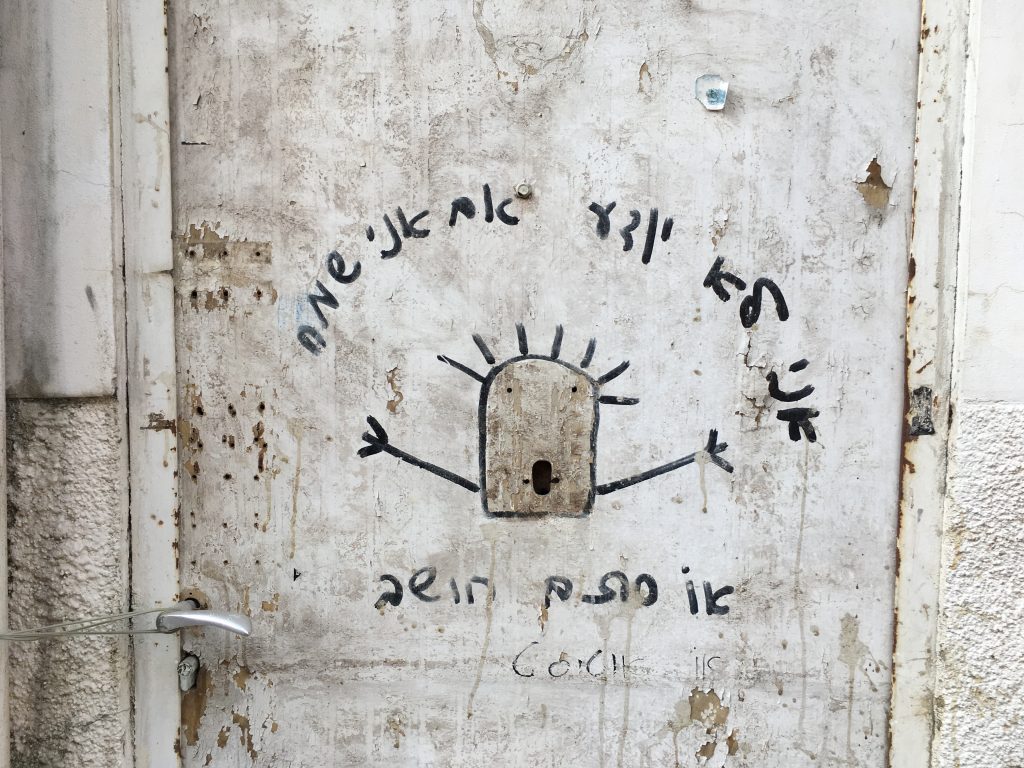 אני לא יודע אם אני שמח
או סתם חושב
או אוטיסט